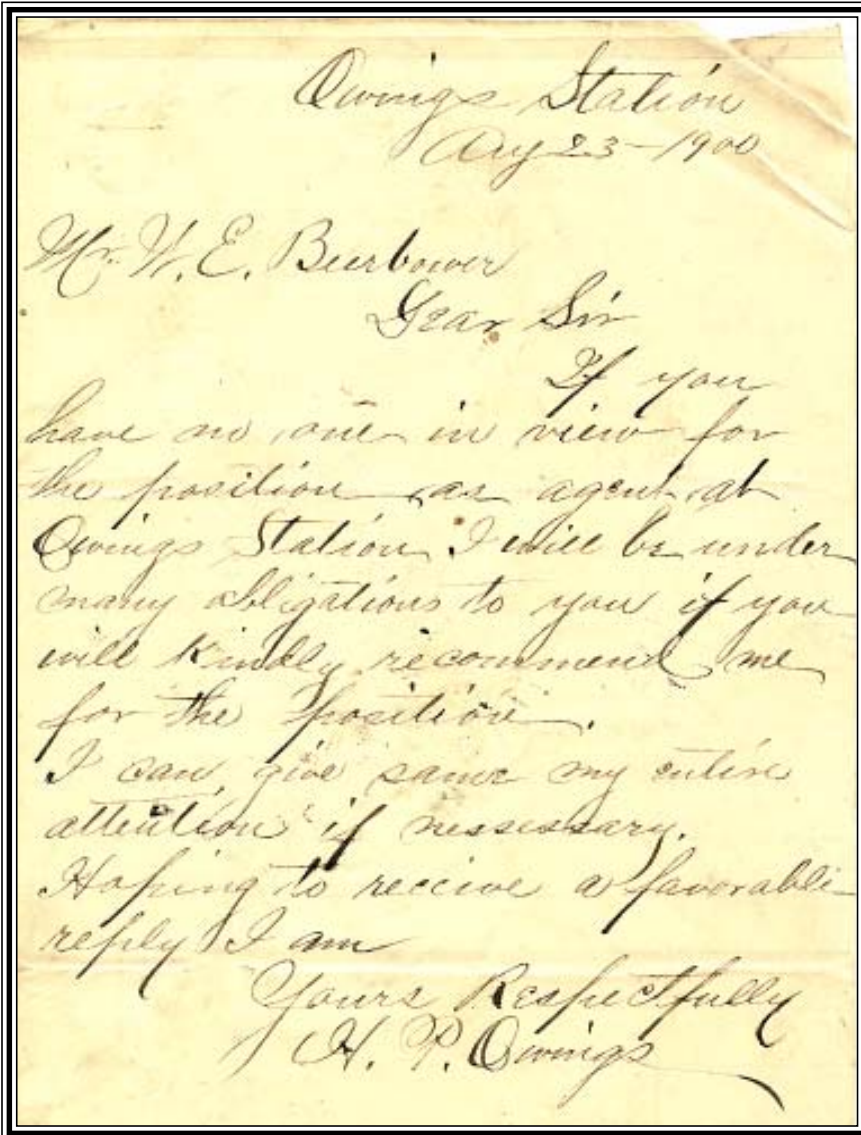 Owings Station
Aug 23-1900
Mr. W. E. Beerbower
Dear Sir
If you
have no one in view for
the position as agent at
Owings Station I will be under
many obligations to you if you
will kindly recommend me
for the position.
I can give same my entire
attention if nessessary.
Hoping to receive a favorable
reply I am
Yours Respectfully
H. P. Owings